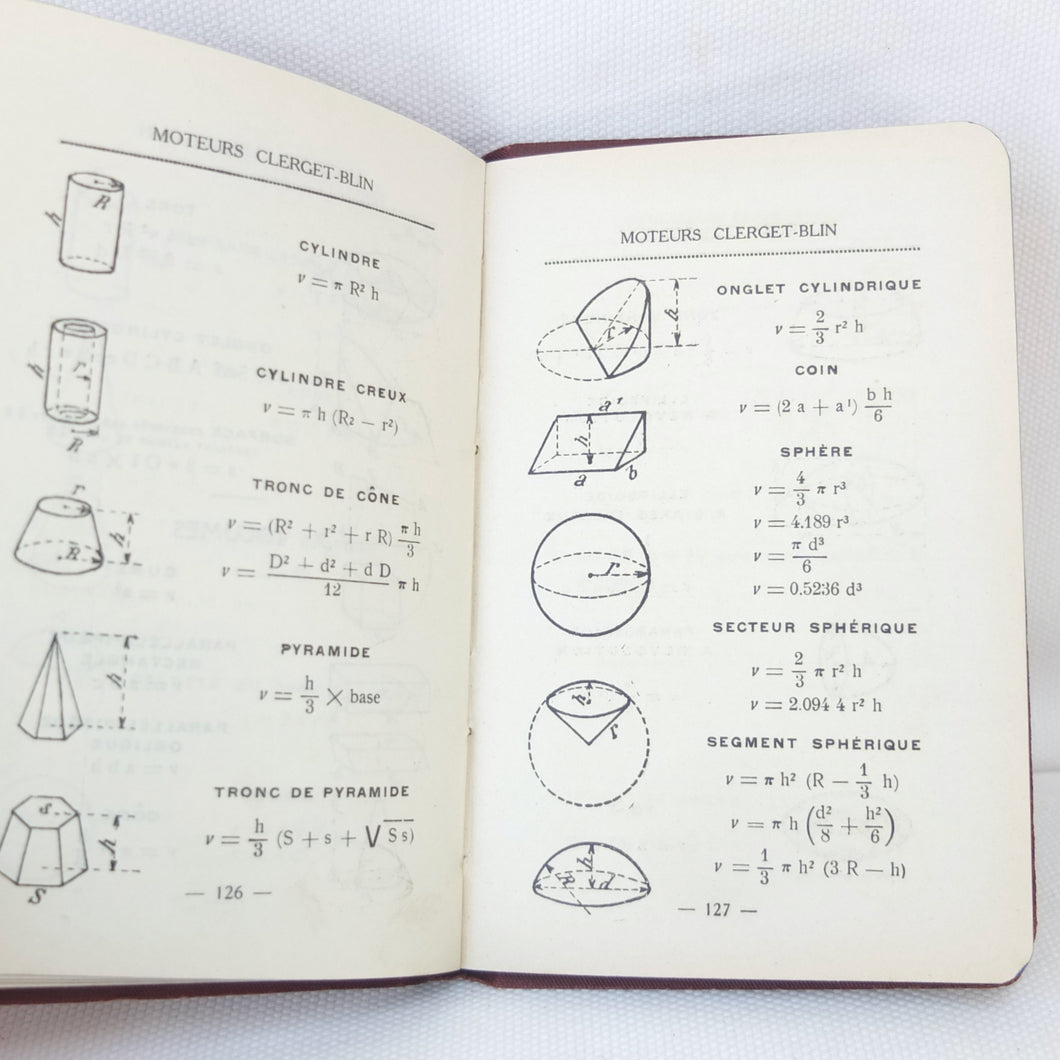 MOTEURS CLERGET-BLIN
R
h
CYLINDRE
v = π R² h
r
h
R
CYLINDRE CREUX
v = π h (R₂ — r²)
r
h
R
TRONC DE CÔNE
v = (R² + r² + r R) π h / 3
v = D² + d² + d D / 12 π h
h
PYRAMIDE
v = h / 3 × base
s
h
S
TRONC DE PYRAMIDE
v = h / 3 (S + s + √S s)
— 126 —
MOTEURS CLERGET-BLIN
r
h
ONGLET CYLINDRIQUE
v = 2/3 r² h
a'
h
a
b
COIN
v = (2 a + a¹) b h / 6
r
SPHÈRE
v = 4/3 π r³
v = 4.189 r³
v = π d³ / 6
v = 0.5236 d³
h
r
SECTEUR SPHÉRIQUE
v = 2/3 π r² h
v = 2.094 4 r² h
h
R
d
SEGMENT SPHÉRIQUE
v = π h² (R — 1/3 h)
v = π h (d²/8 + h²/6)
v = 1/3 π h² (3 R — h)
— 127 —